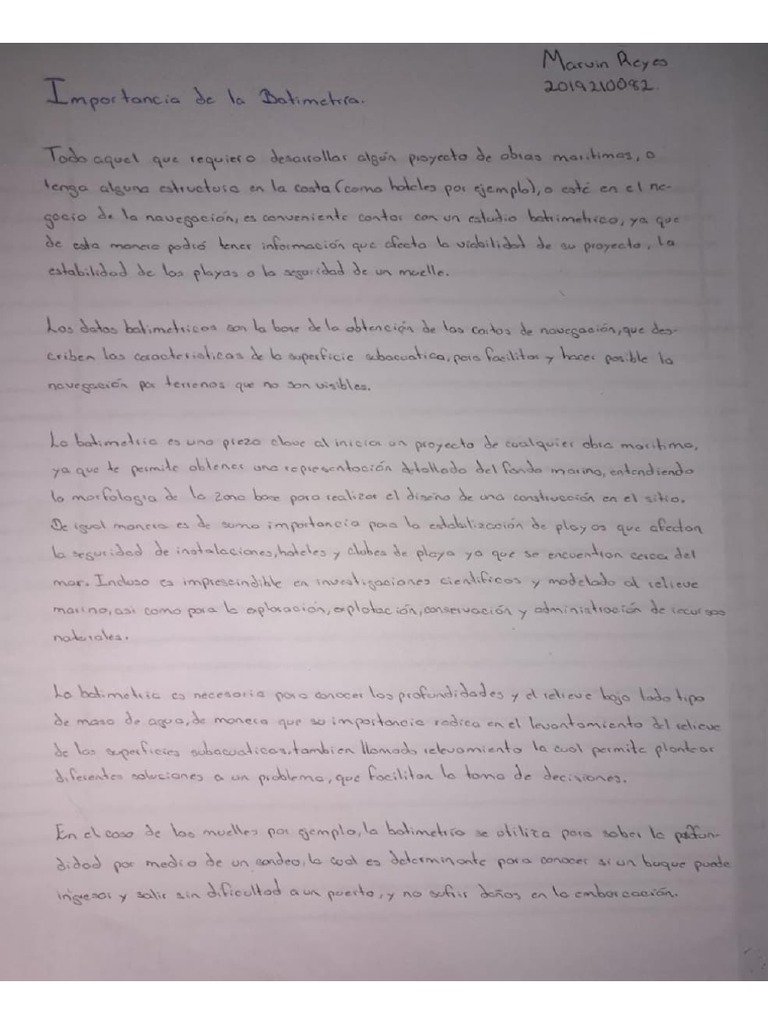 Marvin Reyes
2019210082.
Importancia de la Batimetría.
Todo aquel que requiera desarrollar algún proyecto de obras marítimas, o
tenga alguna estructura en la costa (como hoteles por ejemplo), o esté en el ne-
gocio de la navegación, es conveniente contar con un estudio batrimetrico, ya que
de esta manera podrá tener información que afecta la viabilidad de su proyecto, la
estabilidad de las playas o la seguridad de un muelle.
Los datos batimetricos son la base de la obtención de las cartas de navegación, que des-
criben las caracteristicas de la superficie subacuatica, para facilitar y hacer posible la
navegación por terrenos que no son visibles.
La batimetria es una pieza clave al inicia un proyecto de cualquier obra maritima,
ya que te permite obtener una representación detallada del fondo marino, entendiendo
la morfologia de la zona base para realizar el diseño de una construcción en el sitio.
De igual manera es de suma importancia para la estabilización de playas que afectan
la seguridad de instalaciones, hoteles y clubes de playa ya que se encuentran cerca del
mar. Incluso es imprescindible en investigaciones cientificas y modelado al relieve
marino, asi como para la exploración, explotación, conservación y administración de recursos
naturales.
La batimetria es necesaria para conocer las profundidades y el relieve bajo todo tipo
de masa de agua, de manera que su importancia radica en el levantamiento del relieve
de las superficies subacuaticas, tambien llamado relevamiento la cual permite plantear
diferentes soluciones a un problema, que facilitan la toma de decisiones.
En el caso de los muelles por ejemplo, la batimetría se utiliza para saber la profun-
didad por medio de un sondeo, la cual es determinante para conocer si un buque puede
ingresar y salir sin dificultad a un puerto, y no sufrir daños en la embarcación.